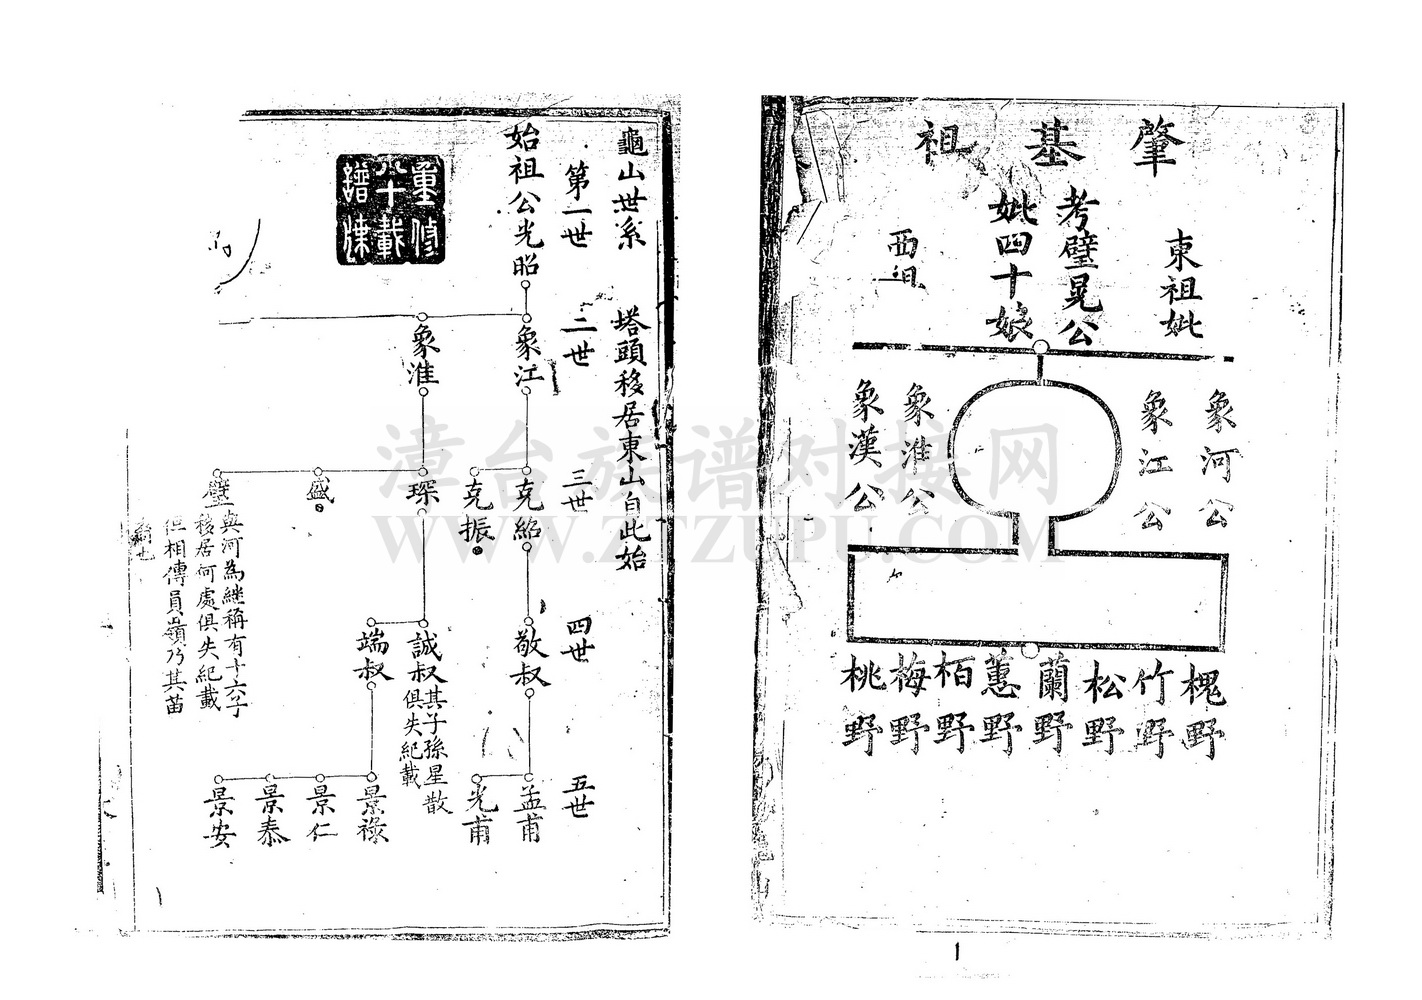 肇基祖
東祖妣
考璧晃公
妣四十娘
西祖
象河公
象江公
象淮公
象漢公
槐野
竹野
松野
蘭野
蕙野
栢野
梅野
桃野
1
龜山世系
塔頭移居東山自此始
第一世
二世
三世
四世
五世
始祖公光昭
象江
象淮
克紹
克振
琛
盛
璧
與河為継稱有十六子
移居何處俱失紀載
但相傳員嶺乃其苗
裔也
敬叔
誠叔
其子孫星散
俱失紀載
端叔
孟甫
光甫
景祿
景仁
景泰
景安
重修
八十載
譜牒
漳台族谱对接网
WWW.ZTZUPU.COM